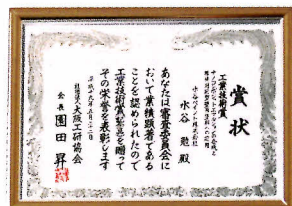 賞状
工業技術賞
水谷ペイント株式会社
水谷 勉 殿
あなたは審査委員会に
おいて業績顕著である
ことを認められたので
工業技術賞を贈って
その栄誉を表彰します
平成十九年五月二十二日
社団法人 大阪工研協会
会長 園田 昇